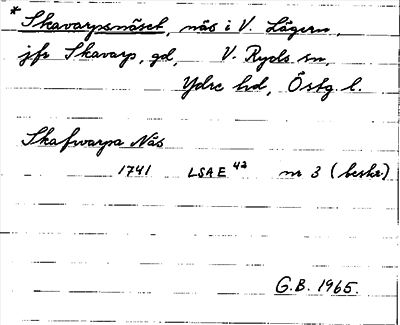 * Skavarpsnäset, näs i V. Lägern,
jfr Skavarp, gd, V. Ryds sn,
Ydre hd, Östg. l.
Skafwarpa Näs
1741 LSA E 42 nr 3 (beskr)
G.B. 1965